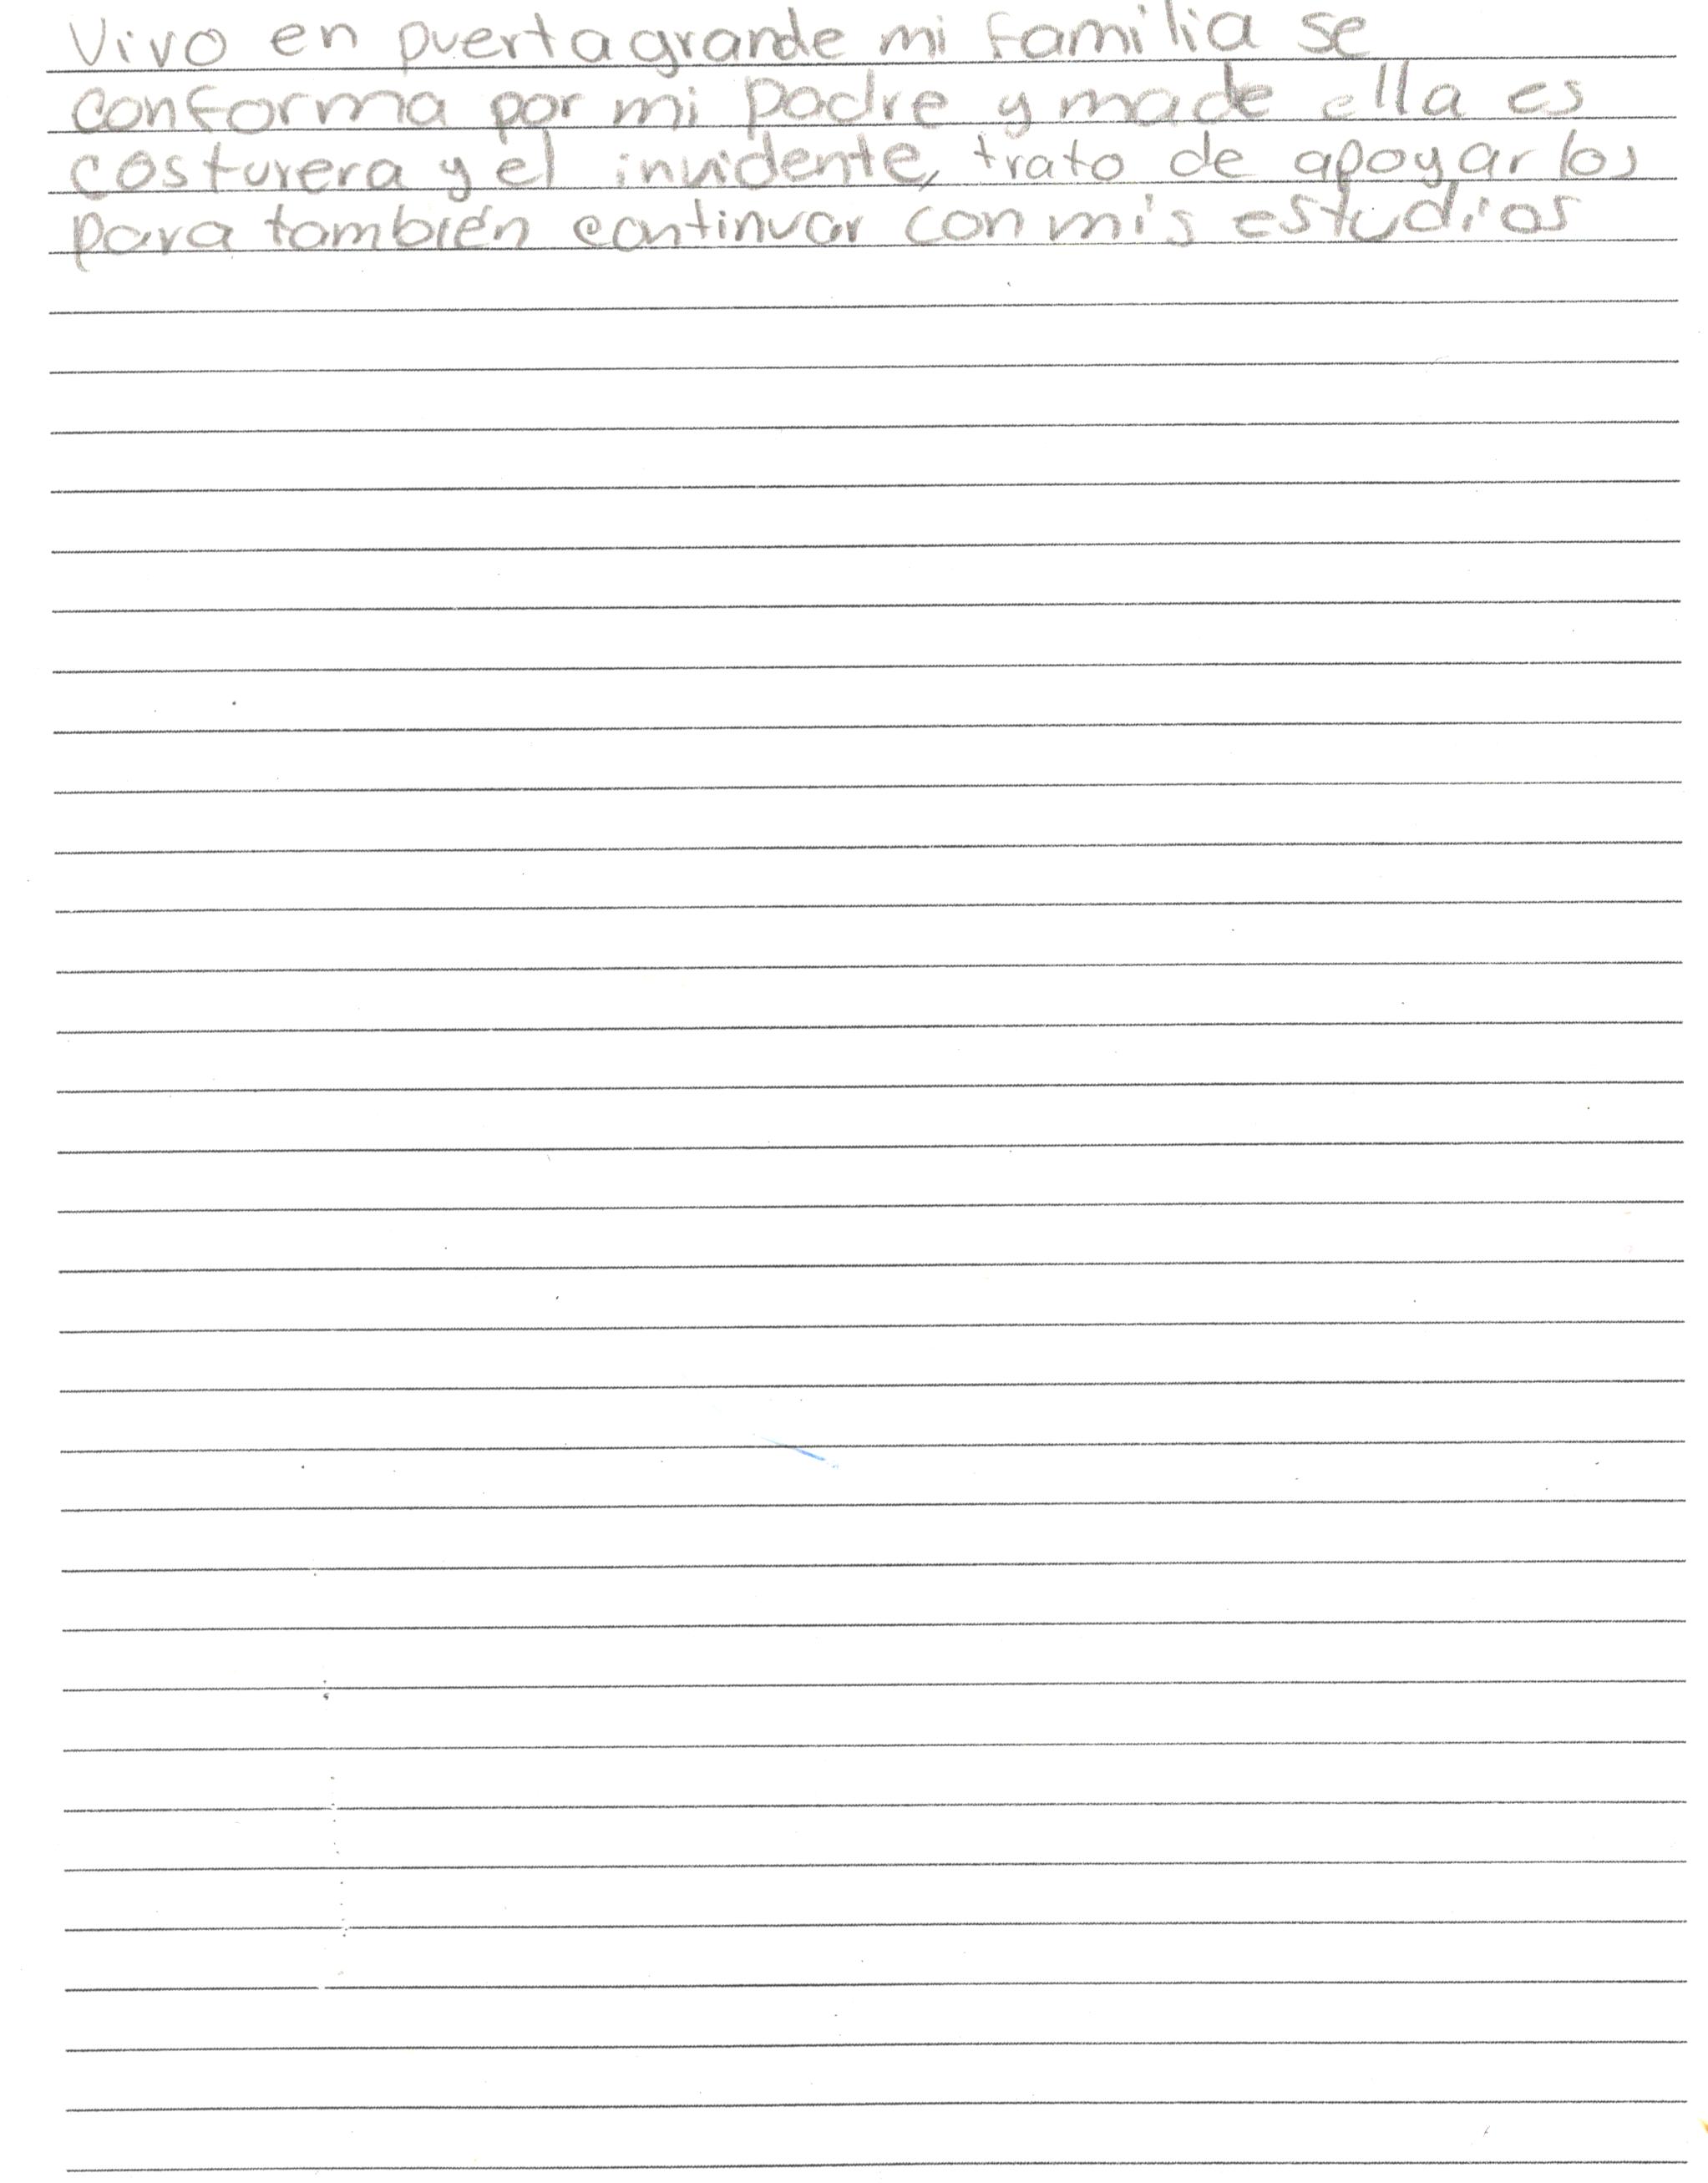 Vivo en puertagrande mi familia se
conforma por mi padre y made ella es
costurera y el invidente, trato de apoyarlos
para también continuar con mis estudios